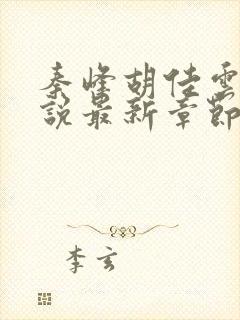 秦峰胡佳雲
說最新章節
李玄